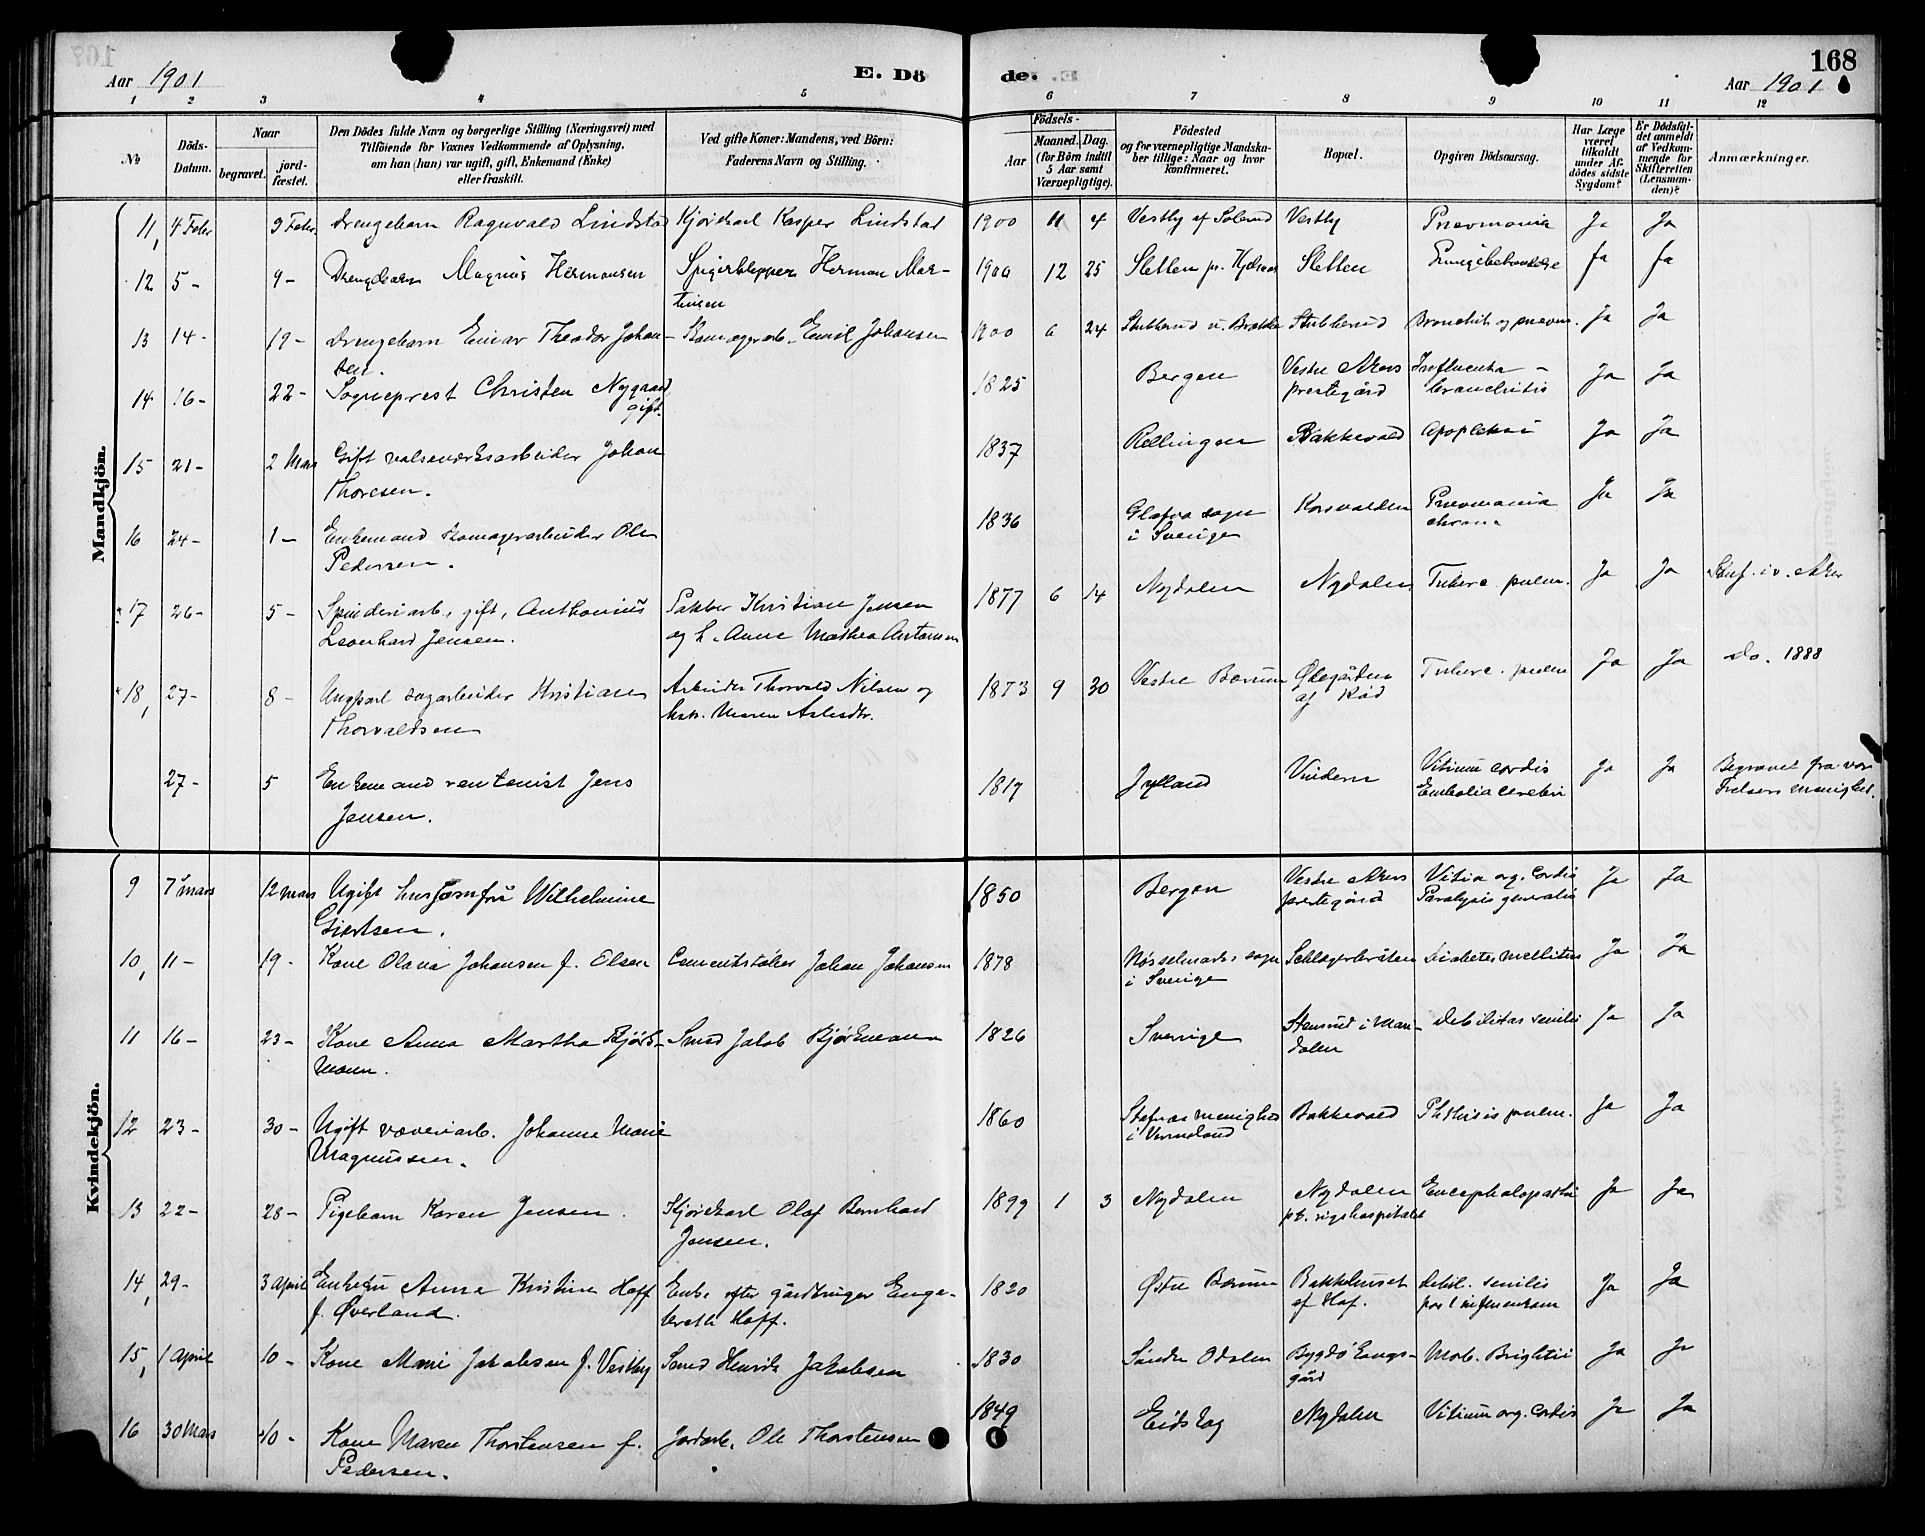 168
Aar 1901
E. Dö
de.
Aar 1901
1 2 3 4 5 6 7 8 9 10 11 12
No
Döds-
Datum.
Naar
begravet.
jord-
fæstet.
Den Dödes fulde Navn og borgerlige Stilling (Næringsvei) med
Tilföiende for Voxnes Vedkommende af Oplysning,
om han (hun) var ugift, gift, Enkemand (Enke)
eller fraskilt.
Ved gifte Koner: Mandens, ved Börn:
Faderens Navn og Stilling.
Födsels-
Aar
Maaned. Dag.
(for Börn indtil
5 Aar samt
Værnepligtige).
Födested
og for værnepligtige Mandska-
ber tillige: Naar og hvor
konfirmeret.
Bopæl.
Opgiven Dödsaarsag.
Har Læge
været
tilkaldt
under Af-
dödes sidste
Sygdom?
Er Dödsfal-
det anmeldt
af Vedkom-
mende for
Skifteretten
(Lensman-
den)?
Anmærkninger.
Mandkjön.
11, 4 Febr 9 Febr. Drengebarn Ragnvald Lindstad Kjørekarl Kasper Lindstad 1900 11 4 Vestby af Solerud Vestby Pneumonia Ja Ja
12 5- 9- Drengebarn Magnus Hermansen Spigerklipper Herman Mar- 1900 12 25 Sletten pr. Kjelsaas Sletten Lungebetændelse Ja Ja
tinsen
13 14- 19- Drengebarn Einar Theodor Johan- Kamagerarb. Emil Johansen 1900 6 24 Stubberud u. Brekke Stubberud Bronchit og pneum. Ja Ja
sen.
14 16- 22- Sogneprest Christen Nygaard 1825 Bergen Vestre Akers Influenza -
gift. prestegård bronchitis Ja Ja
15 21- 2 Mars Gift valseværksarbeider Johan 1837 Rellingen Bakkevold Apopleksi Ja Ja
Thoresen.
16 24- 1- Enkemand kamagerarbeider Ole 1836 Glafva sogn Korsvolden Pneumonia Ja Ja
Pedersen. i Sverige chron.
17 26- 5- Spinderiarb., gift, Anthonius Pakker Kristian Jensen 1877 6 14 Nydalen Nydalen Tuberc. pulm. Ja Ja Konf. i v. Aker
Leonhard Jensen. og h. Anne Mathea Antonsen
18, 27- 8- Ungkarl sagarbeider Kristian Arbeider Thorvald Nilsen og 1873 9 30 Vestre Bærum Ødegården Tuberc. pulm Ja Ja do. 1888
Thorvaldsen Maren Aslesdtr. af Rød
27- 5 Enkemand rentenist Jens 1819 Jylland Vindern Vitium cordis Ja Ja Begravet fra vor
Jensen. Embolia cerebri Frelsers menighet.
Kvindekjön.
9 7 mars 12 mars Ugift husjomfru Wilhelmine 1850 Bergen Vestre Akers Vitia org. cordis Ja Ja
Giertsen. prestegård Paralysis generalis
10, 11- 19- Kone Olava Johansen f. Olsen Cementstøber Johan Johansen 1878 Nøsselmarks sogn Schlagerbråten Diabetes mellitus Ja Ja
i Sverige
11 16- 23- Kone Anna Martha Bjørk- Smed Jakob Bjørkmann 1826 Sverrige Stensrud i Mari- Debilitas senilis Ja Ja
mann. dalen
12 23- 30- Ugift væveriarb. Johanne Marie 1860 Stafnæs menighed Bakkevold Phthisis pulm. Ja Ja
Magnussen. i Vermeland
13 22- 28- Pigebarn Karen Jensen. Kjørekarl Olaf Bernhard 1899 1 3 Nydalen Nydalen Encephalopathi Ja Ja
Jensen. pt. rigshospitalet
14, 29- 3 April Enkefru Anna Kristine Hoff Enke efter gårdbruger Enge- 1820 Østre Bærum Bakkehuset Debil. senilis Ja Ja
f. Øverland. breth Hoff. af Hof. post influenzam
15, 1 April 10- Kone Marie Jakobsen f. Vestby Smed Henrik Jakobsen 1830 Søndre Odalen Bygdø Kongs- Morb. Brightii Ja Ja
gård
16 30 Mars 10- Kone Maren Thorstensen f. Jordarb. Ole Thorstensen 1849 Eidskog Nydalen Vitium org. cordis Ja Ja
Pedersen.